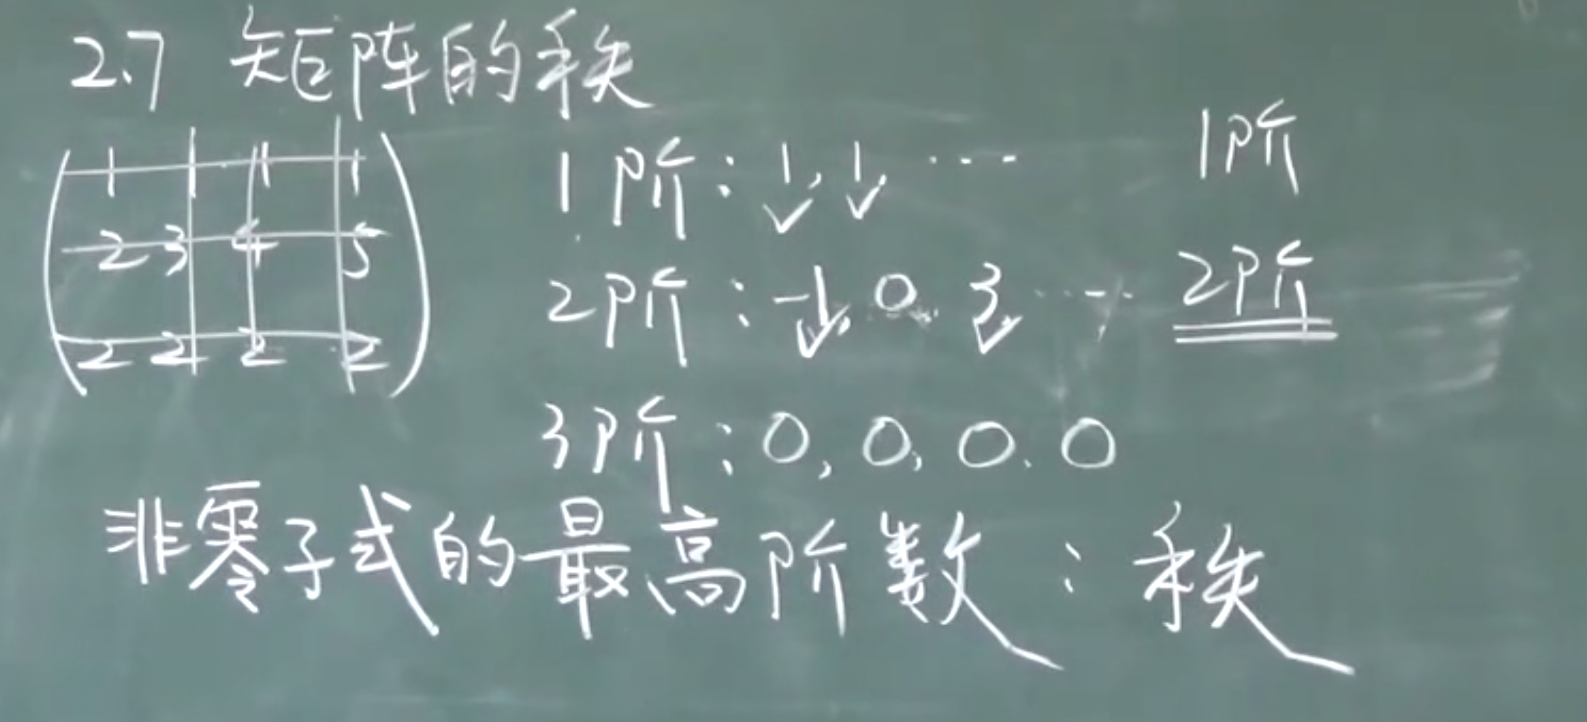 2.7 矩阵的秩
1 1 1 1
2 3 4 5
2 2 2 2
1阶：1, 1 ⋯ 1阶
2阶：-1, 0, 3, ⋯ 2阶
3阶：0, 0, 0, 0
非零子式的最高阶数：秩